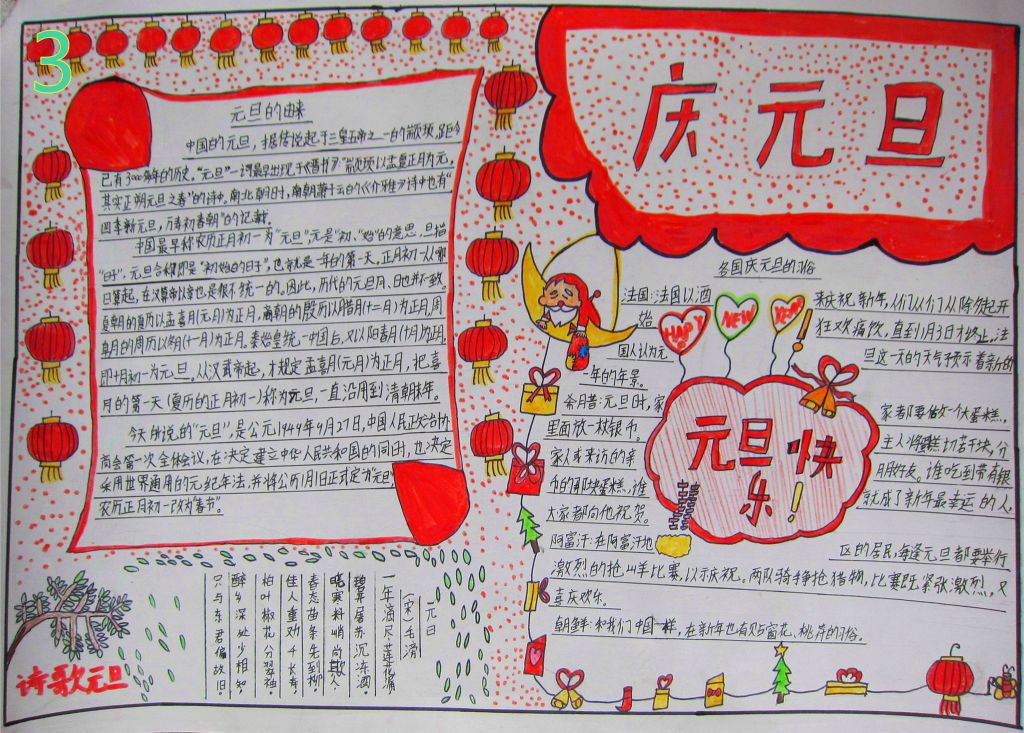 3
庆元旦
元旦的由来
中国的元旦，据传说起于三皇五帝之一的颛顼，距今
已有3000多年的历史。"元旦"一词最早出现于《晋书》："颛顼以孟夏正月为元，
其实正朔元旦之春"的诗中。南北朝时，南朝萧子云的《介雅》诗中也有"
四季新元旦，万寿初春朝"的记载。
中国最早称农历正月初一为"元旦"，元是"初"、"始"的意思，旦指
"日子"，元旦合称即是"初始的日子"，也就是一年的第一天。正月初一从哪
日算起，在汉武帝以前也是很不统一的。因此，历代的元旦月、日也并不一致。
夏朝的夏历以孟喜月（元月）为正月，商朝的殷历以腊月（十二月）为正月，周
朝的周历以冬月（十一月）为正月。秦始皇统一中国后，又以阳春月（十月）为正月，
即十月初一为元旦。从汉武帝起，才规定孟喜月（元月）为正月，把喜
月的第一天（夏历的正月初一）称为元旦，一直沿用到清朝末年。
今天所说的"元旦"，是公元1949年9月27日，中国人民政治协
商会第一次全体会议，在决定建立中华人民共和国的同时，也决定
采用世界通用的元纪年法，并将公历1月1日正式定为"元旦"，
农历正月初一改为"春节"。
各国庆元旦的习俗
法国：法国以酒
来庆祝新年，人们从们从除夕起开
始
狂欢痛饮，直到1月3日才终止，法
国人认为元
旦这一天的天气预示着新的
一年的年景。
希腊：元旦时，家
家都要做一个大蛋糕，
里面放一枚银币。
主人将蛋糕切若干块，分
家人或来访的亲
朋好友。谁吃到带有银
币的那块蛋糕，谁
就成了新年最幸运的人，
大家都向他祝贺。
阿富汗：在阿富汗地
区的居民，每逢元旦都要举行
激烈的抢山羊比赛，以示庆祝。两队骑手争抢猎物，比赛既紧张激烈，又
喜庆欢乐。
朝鲜：和我们中国一样，在新年也有贴窗花、桃符的习俗。
HAPPY
NEW
YEAR
元旦快
乐！
元日
（宋）毛滂
一年滴尽莲花漏
碧井屠苏沉冻酒
晓寒料峭尚欺人
春态苗条先到柳
佳人重劝千长寿
柏叶椒花分翠袖
醉乡深处少相知
只与东君偏故旧
诗歌元旦